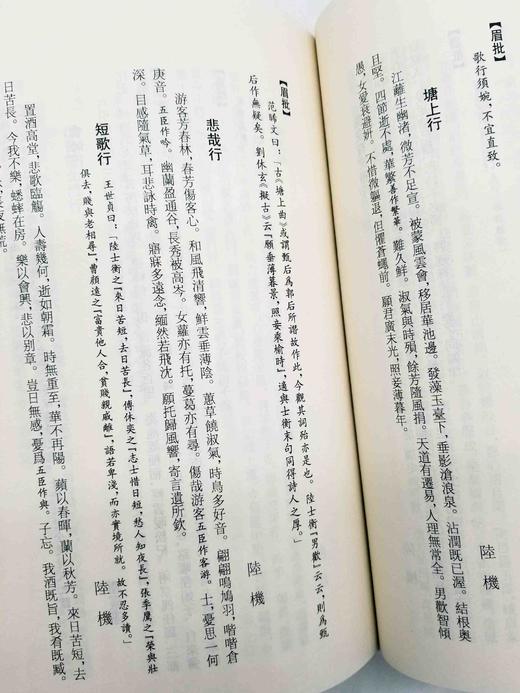 【眉批】
歌行須婉，不宜直致。
塘上行　陸機
江蘺生幽渚，微芳不足宣。被蒙風雲會，移居華池邊。發藻玉臺下，垂影滄浪泉。沾潤既已渥，結根奧
且堅。四節逝不處，華繁善作繁華。難久鮮。淑氣與時殞，餘芳隨風捐。天道有遷易，人理無常全。男歡智傾
愚，女愛衰避妍。不惜微軀退，但懼蒼蠅前。願君廣末光，照妾薄暮年。
【眉批】
范晞文曰：「古《塘上曲》或謂甄后爲郭后所譖故作此，今觀其詞殆亦是也。陸士衡『男歡』云云，則爲甄
后作無疑矣。劉休玄《擬古》云『願垂薄暮景，照妾桑榆時』，適與士衡末句同得詩人之厚。」
悲哉行　陸機
游客芳春林，春芳傷客心。和風飛清響，鮮雲垂薄陰。蕙草饒淑氣，時鳥多好音。翩翩鳴鳩羽，喈喈倉
庚音。五臣作吟。幽蘭盈通谷，長秀被高岑。女蘿亦有托，蔓葛亦有尋。傷哉游客五臣作客游。士，憂思一何
深。目感隨氣草，耳悲詠時禽。寤寐多遠念，緬然若飛沈。願托歸風響，寄言遺所欽。
短歌行　陸機
王世貞曰：「陸士衡之『來日苦短，去日苦長』，傅休奕之『志士惜日短，愁人知夜長』，張季鷹之『榮與壯
俱去，賤與老相尋』，曹顏遠之『富貴他人合，貧賤親戚離』，語若卑淺，而亦實境所就，故不忍多讀。」
置酒高堂，悲歌臨觴。人壽幾何，逝如朝霜。時無重至，華不再陽。蘋以春暉，蘭以秋芳。來日苦短，去
日苦長。今我不樂，蟋蟀在房。樂以會興，悲以別章。豈日無感，憂爲五臣作與。子忘。我酒既旨，我肴既臧。
長夜無荒。